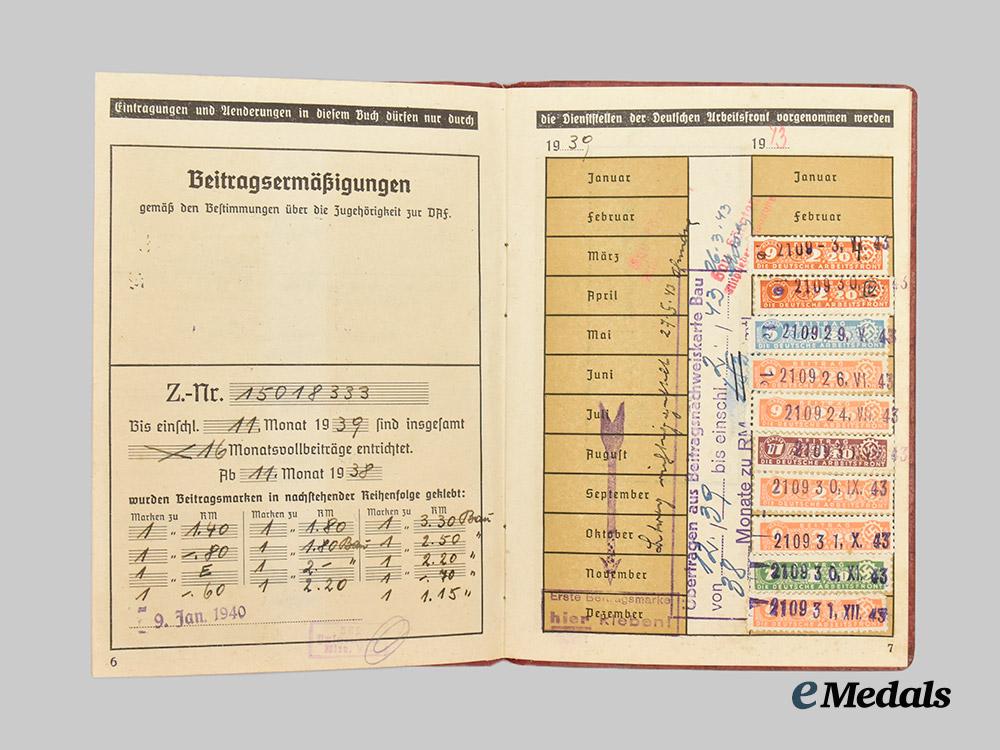 Eintragungen und Aenderungen in diesem Buch dürfen nur durch
Beitragsermäßigungen
gemäß den Bestimmungen über die Zugehörigkeit zur DAF.
Z.-Nr. 15018333
Bis einschl. 11. Monat 1939 sind insgesamt
16 Monatsvollbeiträge entrichtet.
Ab 11. Monat 1938
wurden Beitragsmarken in nachstehender Reihenfolge geklebt:
Marken zu RM Marken zu RM Marken zu RM
1 " 1.40 1 " 1.80 1 " 3.30 Bau
1 " -.80 1 " 1.80 Bau 1 " 2.50 "
1 " E 1 " 2.- " 1 " 2.20 "
1 " -.60 1 " 2.20 1 " -.70 "
1 1.15 "
9. Jan. 1940
6
die Dienststellen der Deutschen Arbeitsfront vorgenommen werden
1939
1943
Januar
Februar
März
April
Mai
Juni
Juli
August
September
Oktober
November
Dezember
Erste Beitragsmarke
hier kleben!
27.5.43
Übertragen aus Beitragsnachweiskarte Bau
von 12./39 bis einschl. 2/43
38 Monate zu RM
26.3.43
Januar
Februar
2109 - 3. 43
2.20
DIE DEUTSCHE ARBEITSFRONT
2109 30. 43
2.20
DIE DEUTSCHE ARBEITSFRONT
2109 29. V. 43
DIE DEUTSCHE ARBEITSFRONT
2109 26. VI. 43
2109 24. VII. 43
2109 3 43
DIE DEUTSCHE ARBEITSFRONT
2109 30. IX. 43
2109 31. X. 43
2109 30. XI. 43
DIE DEUTSCHE ARBEITSFRONT
2109 31. XII. 43
7
eMedals